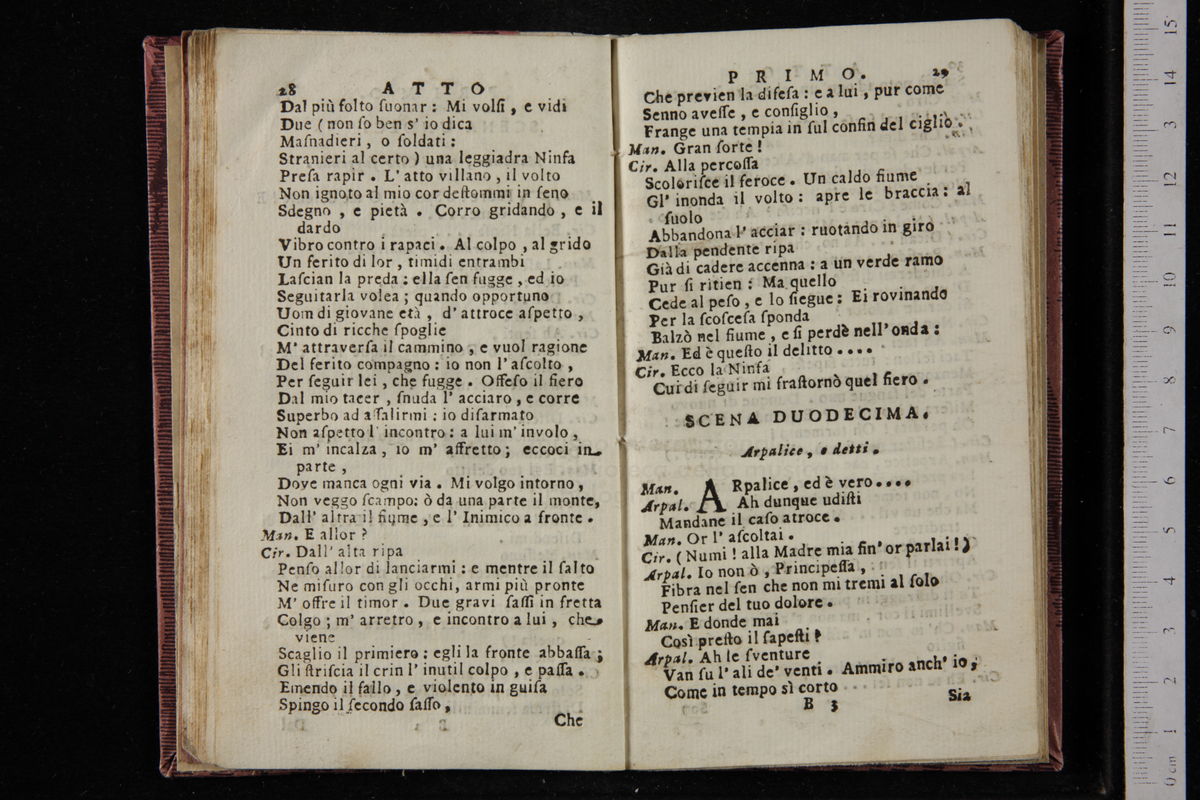 28 ATTO
Dal più folto ſuonar : Mi volſi , e vidi
Due ( non ſo ben s' io dica
Maſnadieri , o ſoldati :
Stranieri al certo ) una leggiadra Ninfa
Preſa rapir . L' atto villano , il volto
Non ignoto al mio cor deſtommi in ſeno
Sdegno , e pietà . Corro gridando , e il
dardo
Vibro contro i rapaci . Al colpo , al grido
Un ferito di lor , timidi entrambi
Laſcian la preda : ella ſen fugge , ed io
Seguitarla volea ; quando opportuno
Uom di giovane età , d' attroce aſpetto ,
Cinto di ricche ſpoglie
M' attraverſa il cammino , e vuol ragione
Del ferito compagno : io non l' aſcolto ,
Per ſeguir lei , che fugge . Offeſo il fiero
Dal mio tacer , ſnuda l' acciaro , e corre
Superbo ad aſſalirmi : io diſarmato
Non aſpetto l' incontro : a lui m' involo ,
Ei m' incalza , io m' affretto ; eccoci in
parte ,
Dove manca ogni via . Mi volgo intorno ,
Non veggo ſcampo: ò da una parte il monte,
Dall' altra il fiume , e l' Inimico a fronte .
Man. E allor ?
Cir. Dall' alta ripa
Penſo allor di lanciarmi : e mentre il ſalto
Ne miſuro con gli occhi , armi più pronte
M' offre il timor . Due gravi ſaſſi in fretta
Colgo ; m' arretro , e incontro a lui , che
viene
Scaglio il primiero : egli la fronte abbaſſa ;
Gli ſtriſcia il crin l' inutil colpo , e paſſa .
Emendo il fallo , e violento in guiſa
Spingo il ſecondo ſaſſo ,
Che
PRIMO. 29
Che previen la difeſa : e a lui , pur come
Senno aveſſe , e conſiglio ,
Frange una tempia in ſul confin del ciglio .
Man. Gran ſorte !
Cir. Alla percoſſa
Scoloriſce il feroce . Un caldo fiume
Gl' inonda il volto : apre le braccia : al
ſuolo
Abbandona l' acciar : ruotando in giro
Dalla pendente ripa
Già di cadere accenna : a un verde ramo
Pur ſi ritien : Ma quello
Cede al peſo , e lo ſiegue : Ei rovinando
Per la ſcoſceſa ſponda
Balzò nel fiume , e ſi perdè nell' onda :
Man. Ed è queſto il delitto ....
Cir. Ecco la Ninfa
Cui di ſeguir mi fraſtornò quel fiero .
SCENA DUODECIMA.
Arpalice, e detti.
Man. ARpalice , ed è vero ....
Arpal. Ah dunque udiſti
Mandane il caſo atroce .
Man. Or l' aſcoltai .
Cir. ( Numi ! alla Madre mia fin' or parlai ! )
Arpal. Io non ò , Principeſſa ,
Fibra nel ſen che non mi tremi al ſolo
Penſier del tuo dolore .
Man. E donde mai
Così preſto il ſapeſti ?
Arpal. Ah le ſventure
Van ſu l' ali de' venti . Ammiro anch' io ,
Come in tempo sì corto
B 3 Sia
0 cm 1 2 3 4 5 6 7 8 9 10 11 12 3 14 15